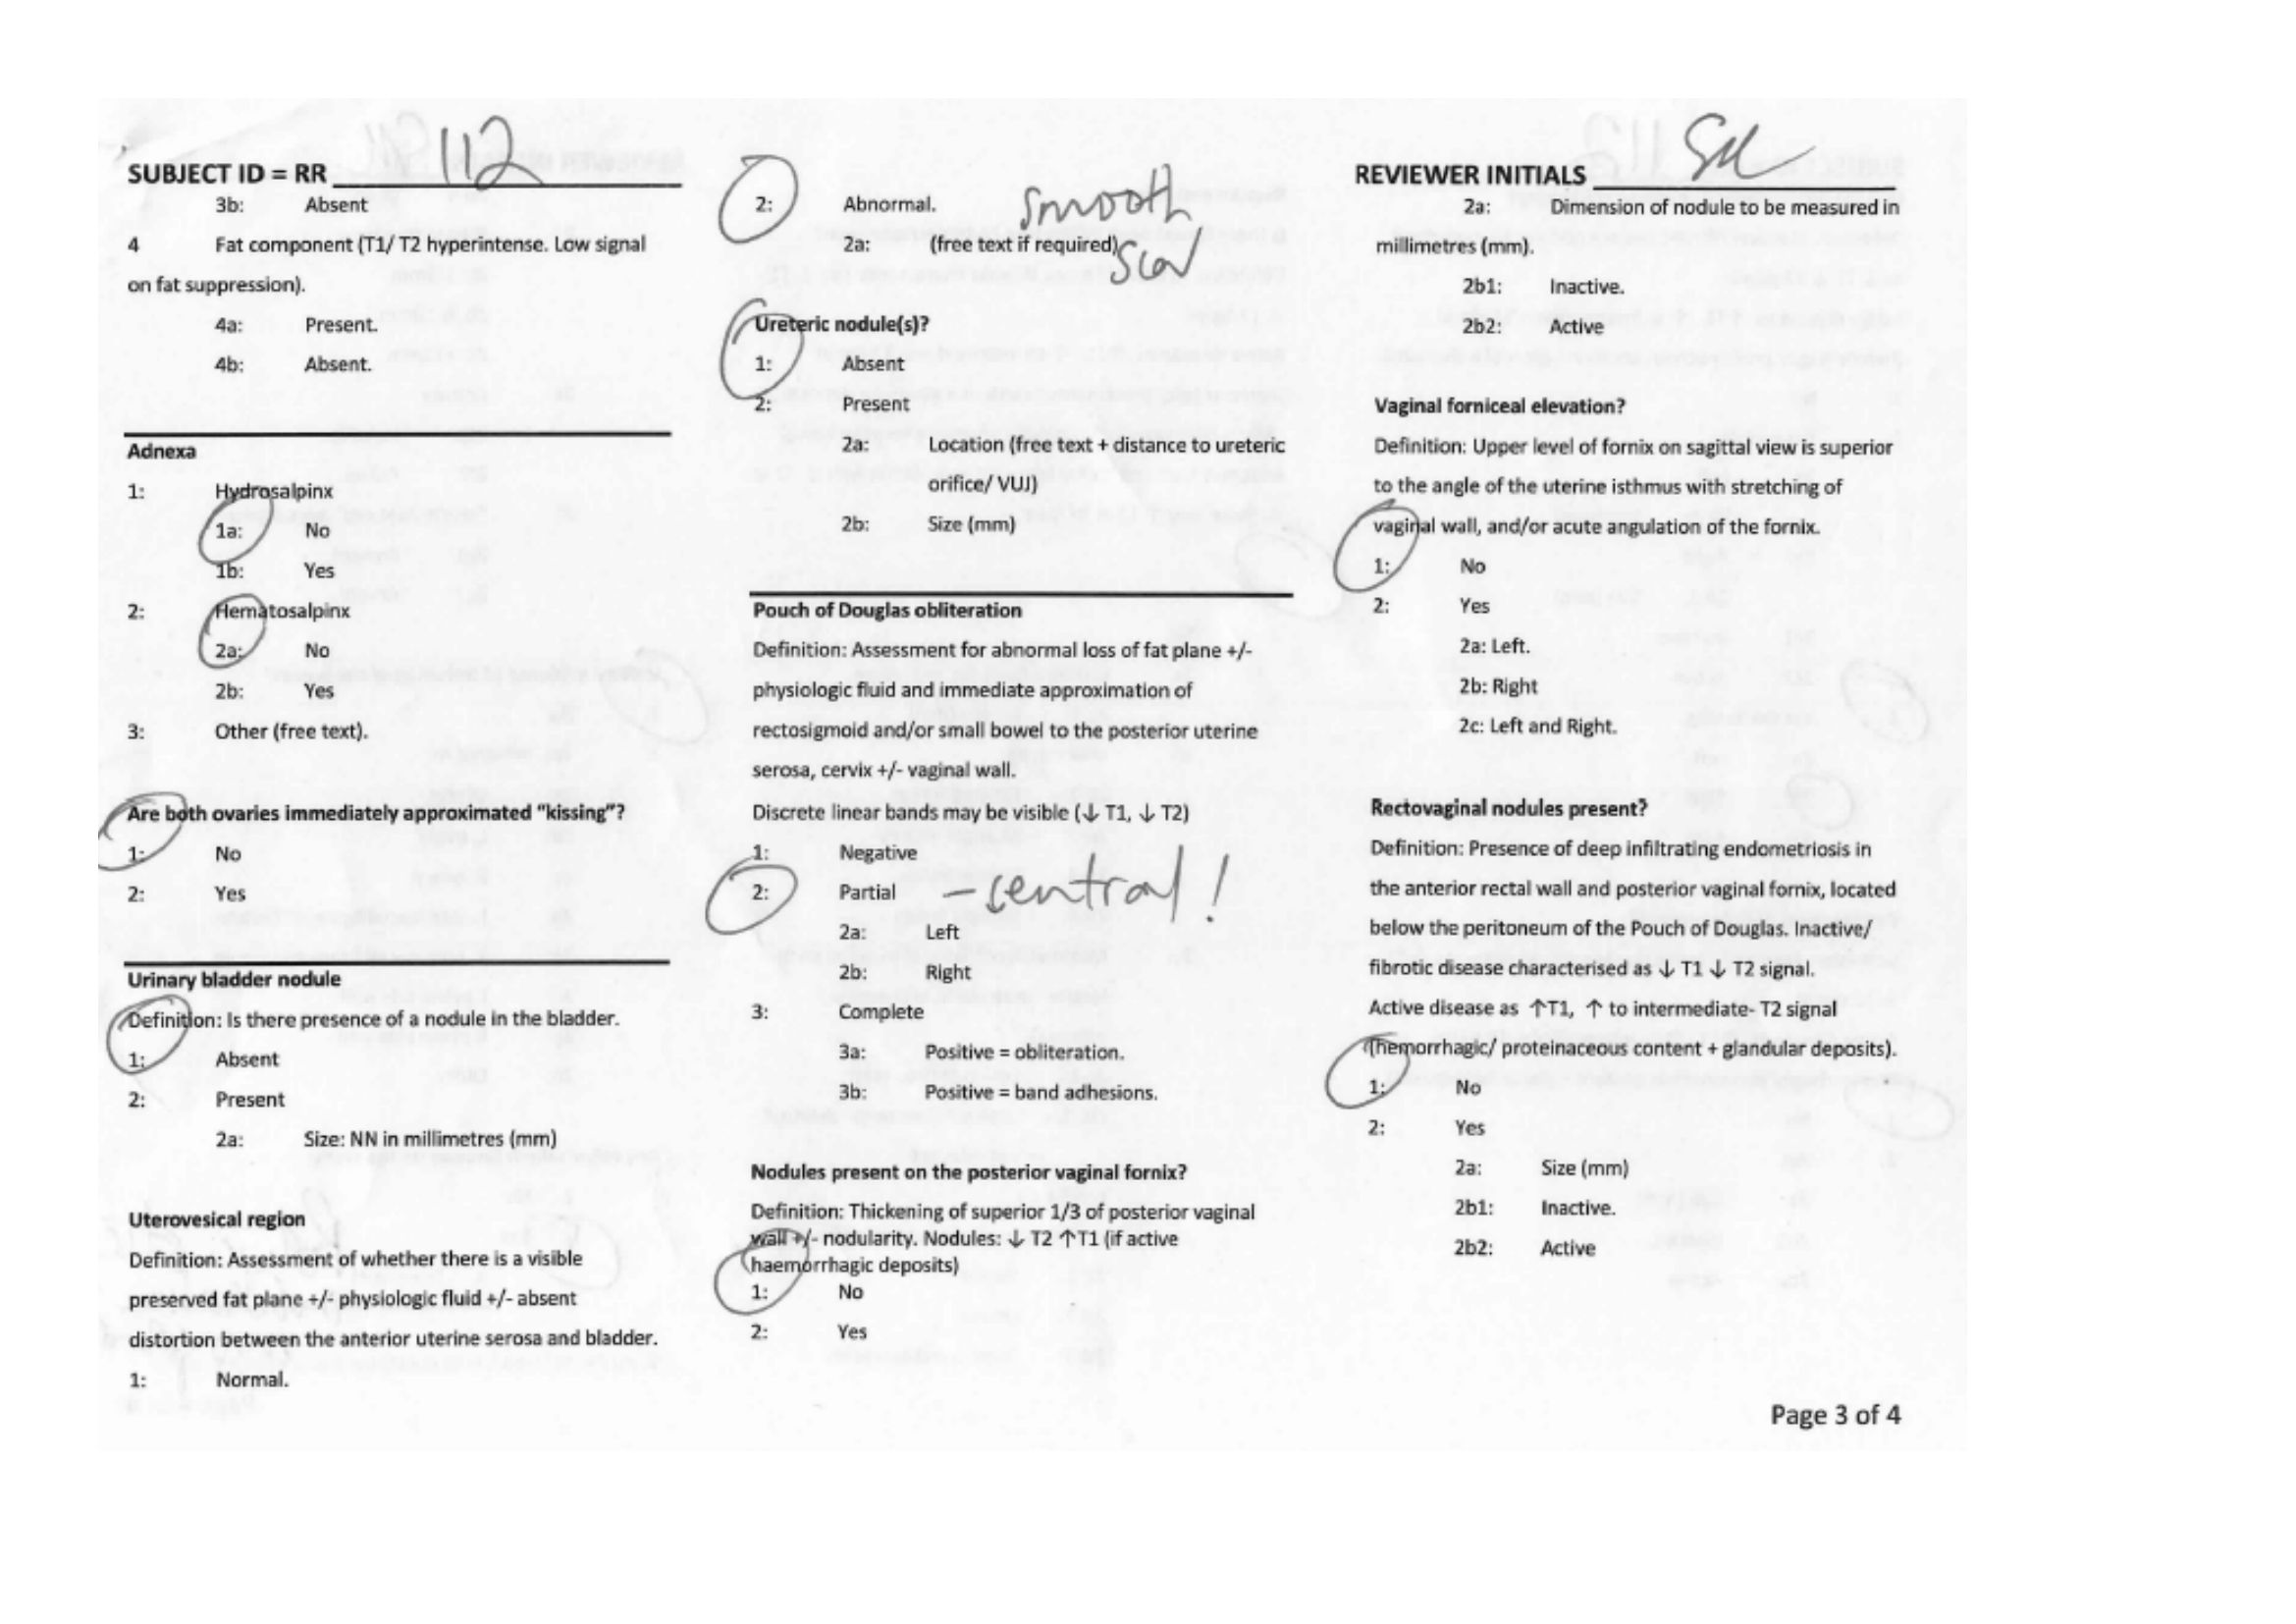 SUBJECT ID = RR 112
3b: Absent
4 Fat component (T1/ T2 hyperintense. Low signal
on fat suppression).
4a: Present.
4b: Absent.
Adnexa
1: Hydrosalpinx
1a: No
1b: Yes
2: Hematosalpinx
2a: No
2b: Yes
3: Other (free text).
Are both ovaries immediately approximated “kissing”?
1: No
2: Yes
Urinary bladder nodule
Definition: Is there presence of a nodule in the bladder.
1: Absent
2: Present
2a: Size: NN in millimetres (mm)
Uterovesical region
Definition: Assessment of whether there is a visible
preserved fat plane +/- physiologic fluid +/- absent
distortion between the anterior uterine serosa and bladder.
1: Normal.
2: Abnormal. smooth
2a: (free text if required) scar
Ureteric nodule(s)?
1: Absent
2: Present
2a: Location (free text + distance to ureteric
orifice/ VUJ)
2b: Size (mm)
Pouch of Douglas obliteration
Definition: Assessment for abnormal loss of fat plane +/-
physiologic fluid and immediate approximation of
rectosigmoid and/or small bowel to the posterior uterine
serosa, cervix +/- vaginal wall.
Discrete linear bands may be visible (↓ T1, ↓ T2)
1: Negative
2: Partial – central!
2a: Left
2b: Right
3: Complete
3a: Positive = obliteration.
3b: Positive = band adhesions.
Nodules present on the posterior vaginal fornix?
Definition: Thickening of superior 1/3 of posterior vaginal
wall +/- nodularity. Nodules: ↓ T2 ↑T1 (if active
haemorrhagic deposits)
1: No
2: Yes
REVIEWER INITIALS
2a: Dimension of nodule to be measured in
millimetres (mm).
2b1: Inactive.
2b2: Active
Vaginal forniceal elevation?
Definition: Upper level of fornix on sagittal view is superior
to the angle of the uterine isthmus with stretching of
vaginal wall, and/or acute angulation of the fornix.
1: No
2: Yes
2a: Left.
2b: Right
2c: Left and Right.
Rectovaginal nodules present?
Definition: Presence of deep infiltrating endometriosis in
the anterior rectal wall and posterior vaginal fornix, located
below the peritoneum of the Pouch of Douglas. Inactive/
fibrotic disease characterised as ↓ T1 ↓ T2 signal.
Active disease as ↑T1, ↑ to intermediate- T2 signal
(hemorrhagic/ proteinaceous content + glandular deposits).
1: No
2: Yes
2a: Size (mm)
2b1: Inactive.
2b2: Active
Page 3 of 4